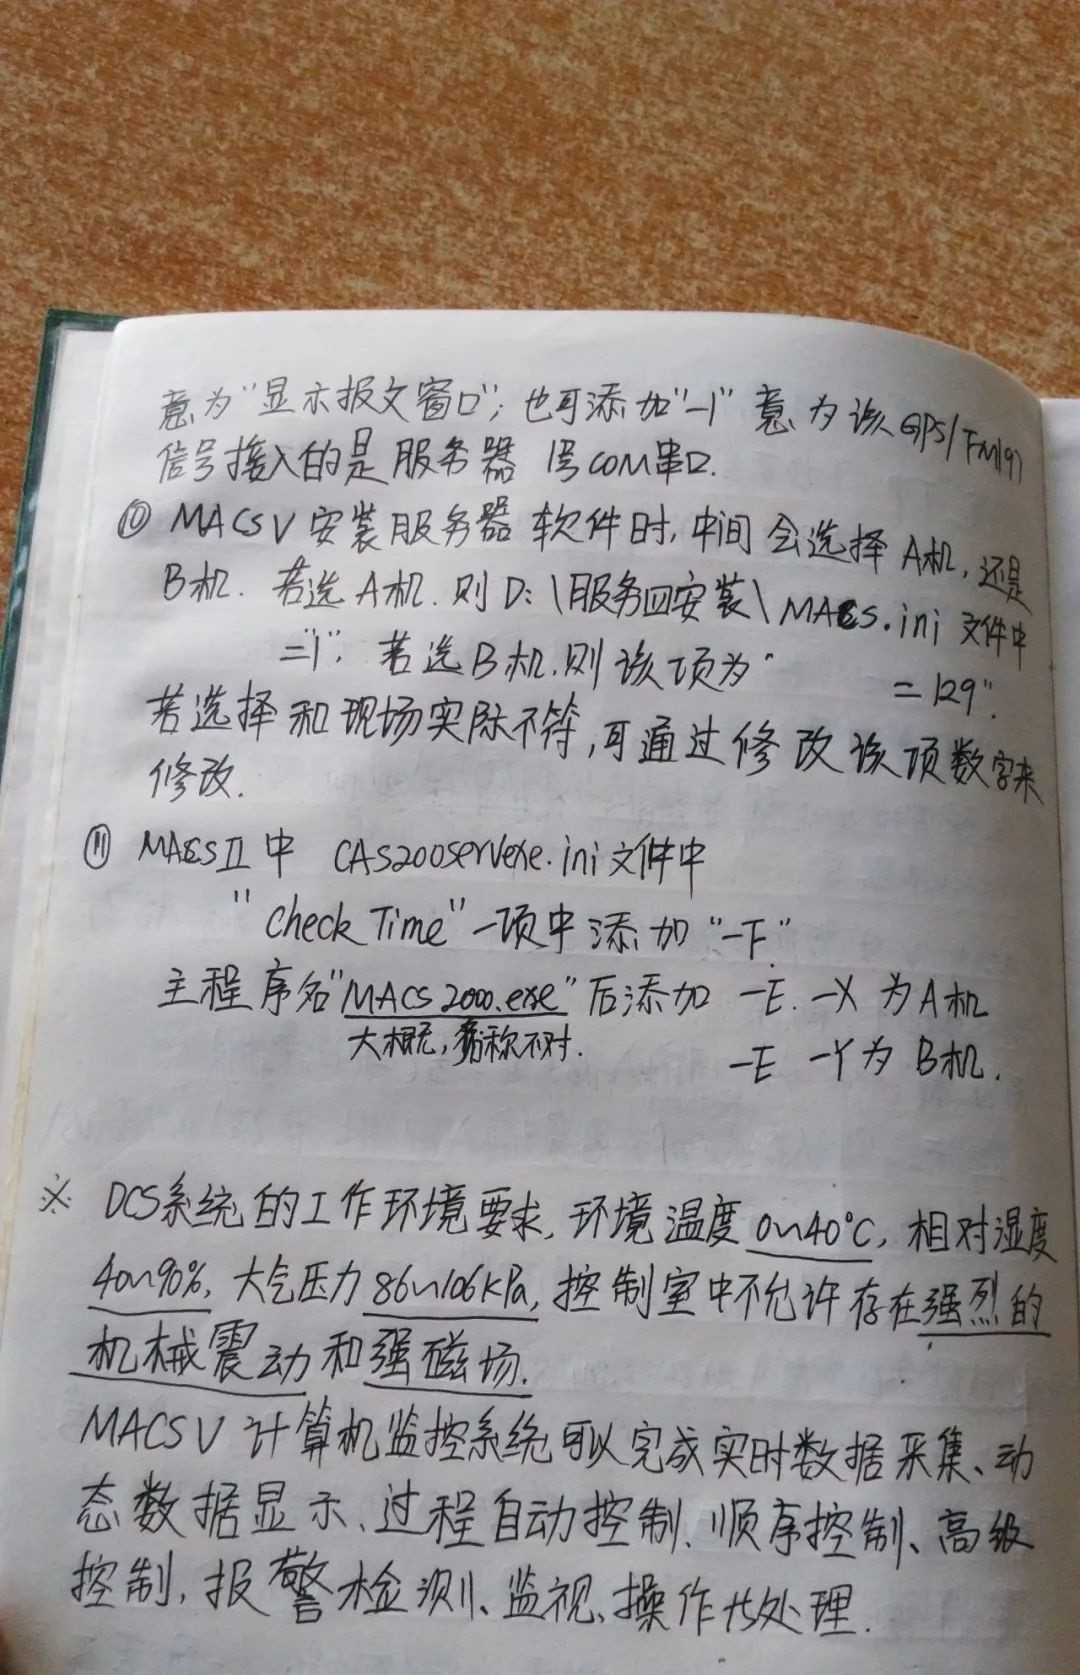 意为"显示报文窗口"; 也可添加"-1" 意为该GPS/FM197
信号接入的是服务器 1号COM串口.
⑩ MACSV 安装服务器 软件时, 中间会选择 A机, 还是
B机. 若选A机. 则D:\服务四安装\MACS.ini 文件中
="1". 若选B机. 则该项为" =129".
若选择和现场实际不符, 可通过修改该项数字来
修改.
⑪ MACSⅡ中 CAS200servexe.ini文件中
"Check Time"一项中添加"-F"
主程序名"MACS2000.exe"后添加 -E. -X 为A机
大概, 名称不对.
-E -Y为 B机.
※ DCS系统的工作环境要求, 环境温度0~40℃, 相对湿度
40~90%, 大气压力86~106kPa, 控制室中不允许存在强烈的
机械震动和强磁场.
MACSV 计算机监控系统可以完成实时数据采集、动
态数据显示、过程自动控制、顺序控制、高级
控制, 报警检测、监视、操作 处理.